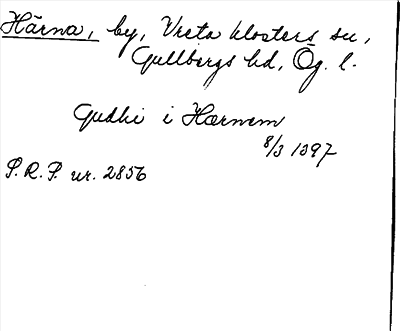 Härna, by, Vreta klosters sn,
Gullbergs hd, Ög. l.
Gudhi i Hærnem
8/3 1397
S.R.P. nr. 2856